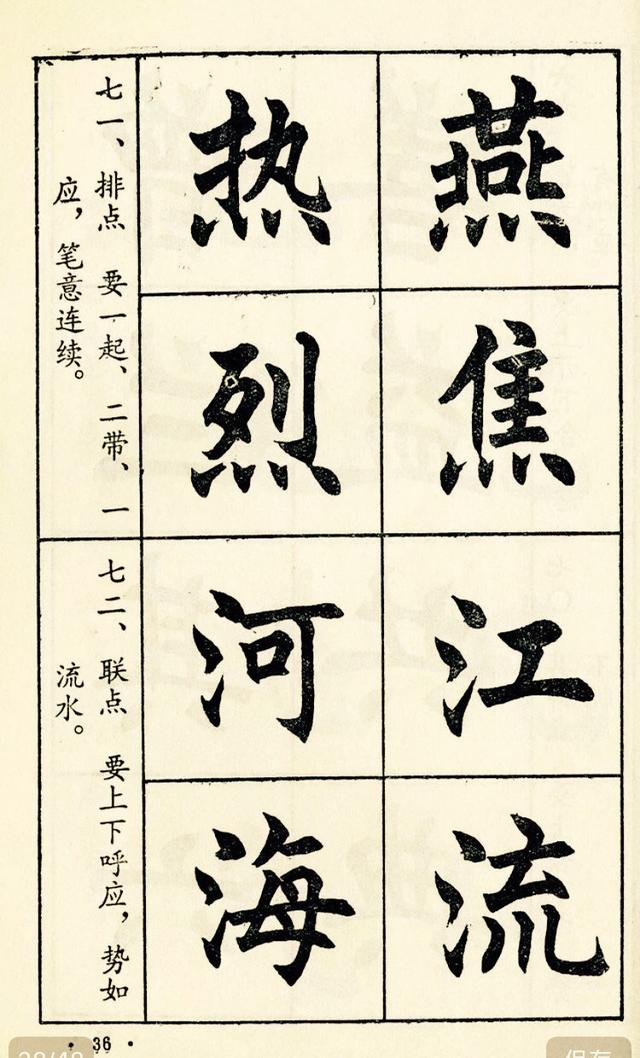 燕
焦
江
流
热
烈
河
海
七一、排点 要一起、二带、一
应，笔意连续。
七二、联点 要上下呼应，势如
流水。
· 36 ·
保存